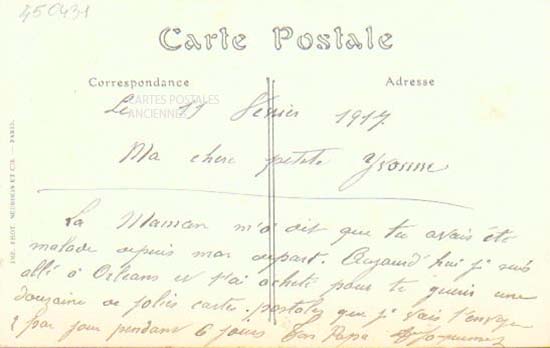 450431
Carte Postale
Correspondance
Adresse
CARTES POSTALES
ANCIENNES
Le 11 Février 1917
Ma chere petite Yvonne
Ta Maman m'a dit que tu avais été
malade depuis mon depart. Aujourd'hui je suis
allé à Orléans et j'ai acheté pour te guerir une
douzaine de jolies cartes-postales que je vais t'envoyer
2 par jour pendant 6 jours Ton Papa
IMP. PHOT. NEURDEIN ET CIE. — PARIS.